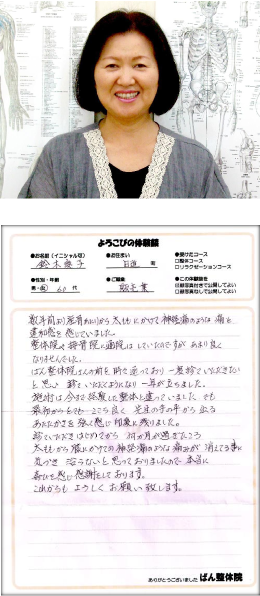 よろこびの体験談
●お名前（イニシャル可） ●お住まい ●受けたコース
鈴木 子 日進 市 □整体コース
□リラクゼーションコース
●性別・年齢 ●ご職業 ●この体験談を
男・女 60代 販売業 □顔写真付きで公開してよい
□顔写真なしで公開してよい
数年前より 左臀あたりから 太ももにかけて神経痛のような痛と
違和感を感じていました。
整体院や接骨院に通院はしていたのですが あまり良く
なりませんでした。
ばん整体院さんの前を時々通っており 一度診ていただきたい
と思い 診ていただくようになり一年が立ちました。
施術は今まで経験した整体と違っていました でも
柔らかくとても ここち良く 先生の手の平から出る
あたたかさを強く感じ印象に残りました。
診ていただきはじめてから 何ヶ月か過ぎたころ
太ももから膝にかけての神経痛のような痛みが消えてる事に
気づき 治らないと思っておりましたので 本当に
喜びを感じ感謝をしております。
これからも よろしく お願い致します。
ありがとうございました ばん整体院